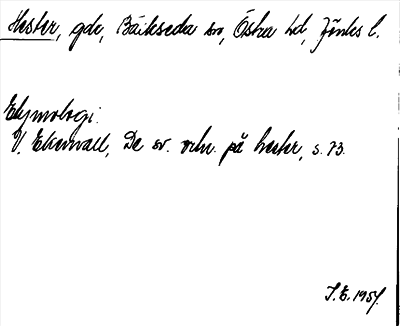 Hester, gde, Bäckseda sn, Östra hd, Jönks l.
Etymologi.
V. Ekenvall, De sv. ortn. på hester, s. 73.
I.E. 1957.